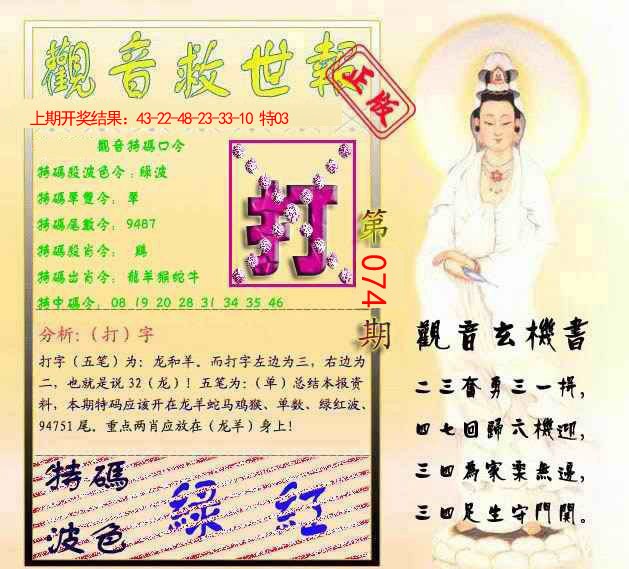 觀音救世報
正版
上期开奖结果：43-22-48-23-33-10 特03
觀音特碼口令
特碼殺波色令：綠波
特碼單雙令：單
特碼尾數令：9487
特碼殺肖令：鷄
特碼出肖令：龍羊猴蛇牛
特中碼令：08 19 20 28 31 34 35 46
打
第074期
分析：（打）字
打字（五笔）为：龙和羊。而打字左边为三，右边为
二，也就是说32（龙）！五笔为：（单）总结本报资
料，本期特码应该开在龙羊蛇马鸡猴、单数、绿红波、
94751尾。重点两肖应放在（龙羊）身上！
特碼
波色
綠 紅
觀音玄機書
二三奮勇三一拼，
四七回歸六機迎，
三四為家栗無邊，
三四足生守門關。